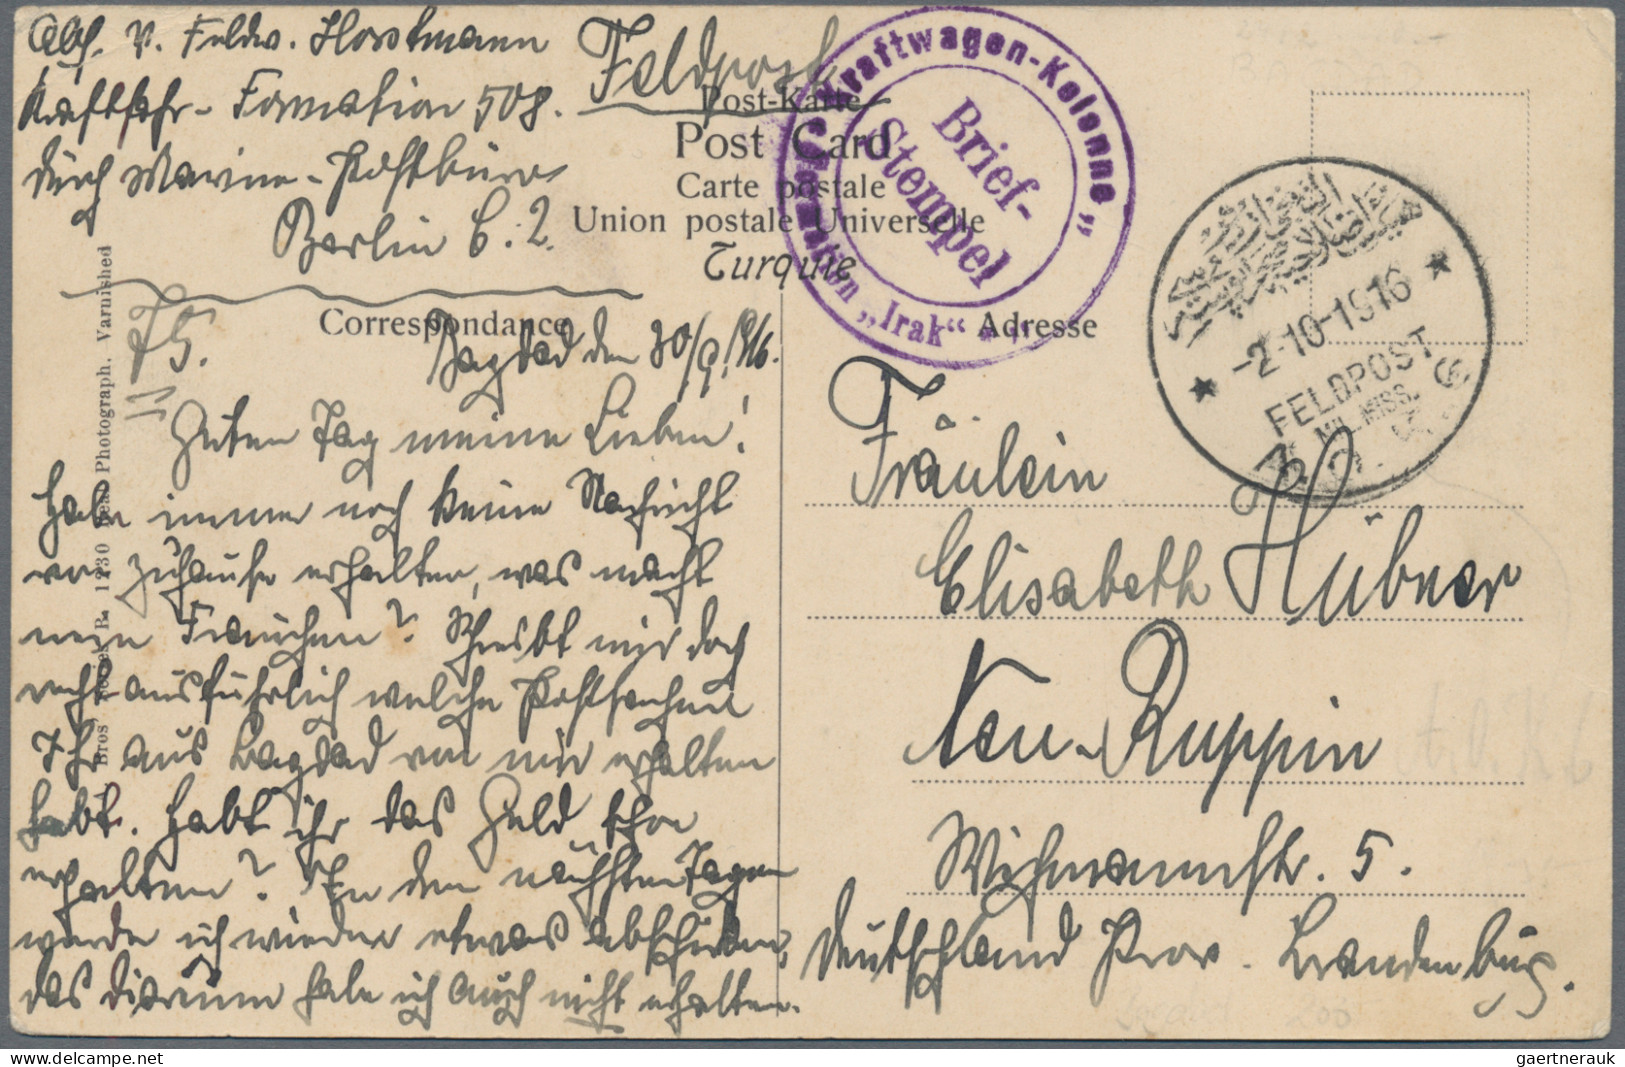 Abs. V. Feldw. Horstmann
Kraftfahr-Formation 508.
durch Marine-Postbüro
Berlin C. 2.
Feldpost
Post-Karte
Post Card
Carte postale
Union postale Universelle
Turquie
Kraftwagen-Kolonne „
Formation „Irak“
Brief-
Stempel
-2-10-1916
FELDPOST
MIL. MISS.
Correspondance
Adresse
75.
Bagdad den 30/9. 1916.
Guten Tag meine Lieben!
Habe immer noch keine Nachricht
von zuhause erhalten, was macht
mein Frauchen? Schreibt mir doch
recht ausführlich welche Postsachen
Ihr aus Bagdad von mir erhalten
habt. Habt ihr das Geld schon
erhalten? In den nächsten Tagen
werde ich wieder etwas abschicken,
das Diarium habe ich auch nicht erhalten.
Fräulein
Elisabeth Hübner
Neu-Ruppin
Wichmannstr. 5.
Deutschland Prov. Brandenburg.
1230 Real Photograph. Varnished
gaertnerauk